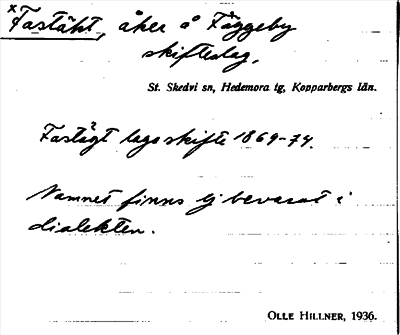 x Fastäkt, åker å Fäggeby
skifteslag.
St. Skedvi sn, Hedemora tg, Kopparbergs län.
Fastägt laga skifte 1869-74.
Namnet finns ej bevarat i
dialekten.
OLLE HILLNER, 1936.